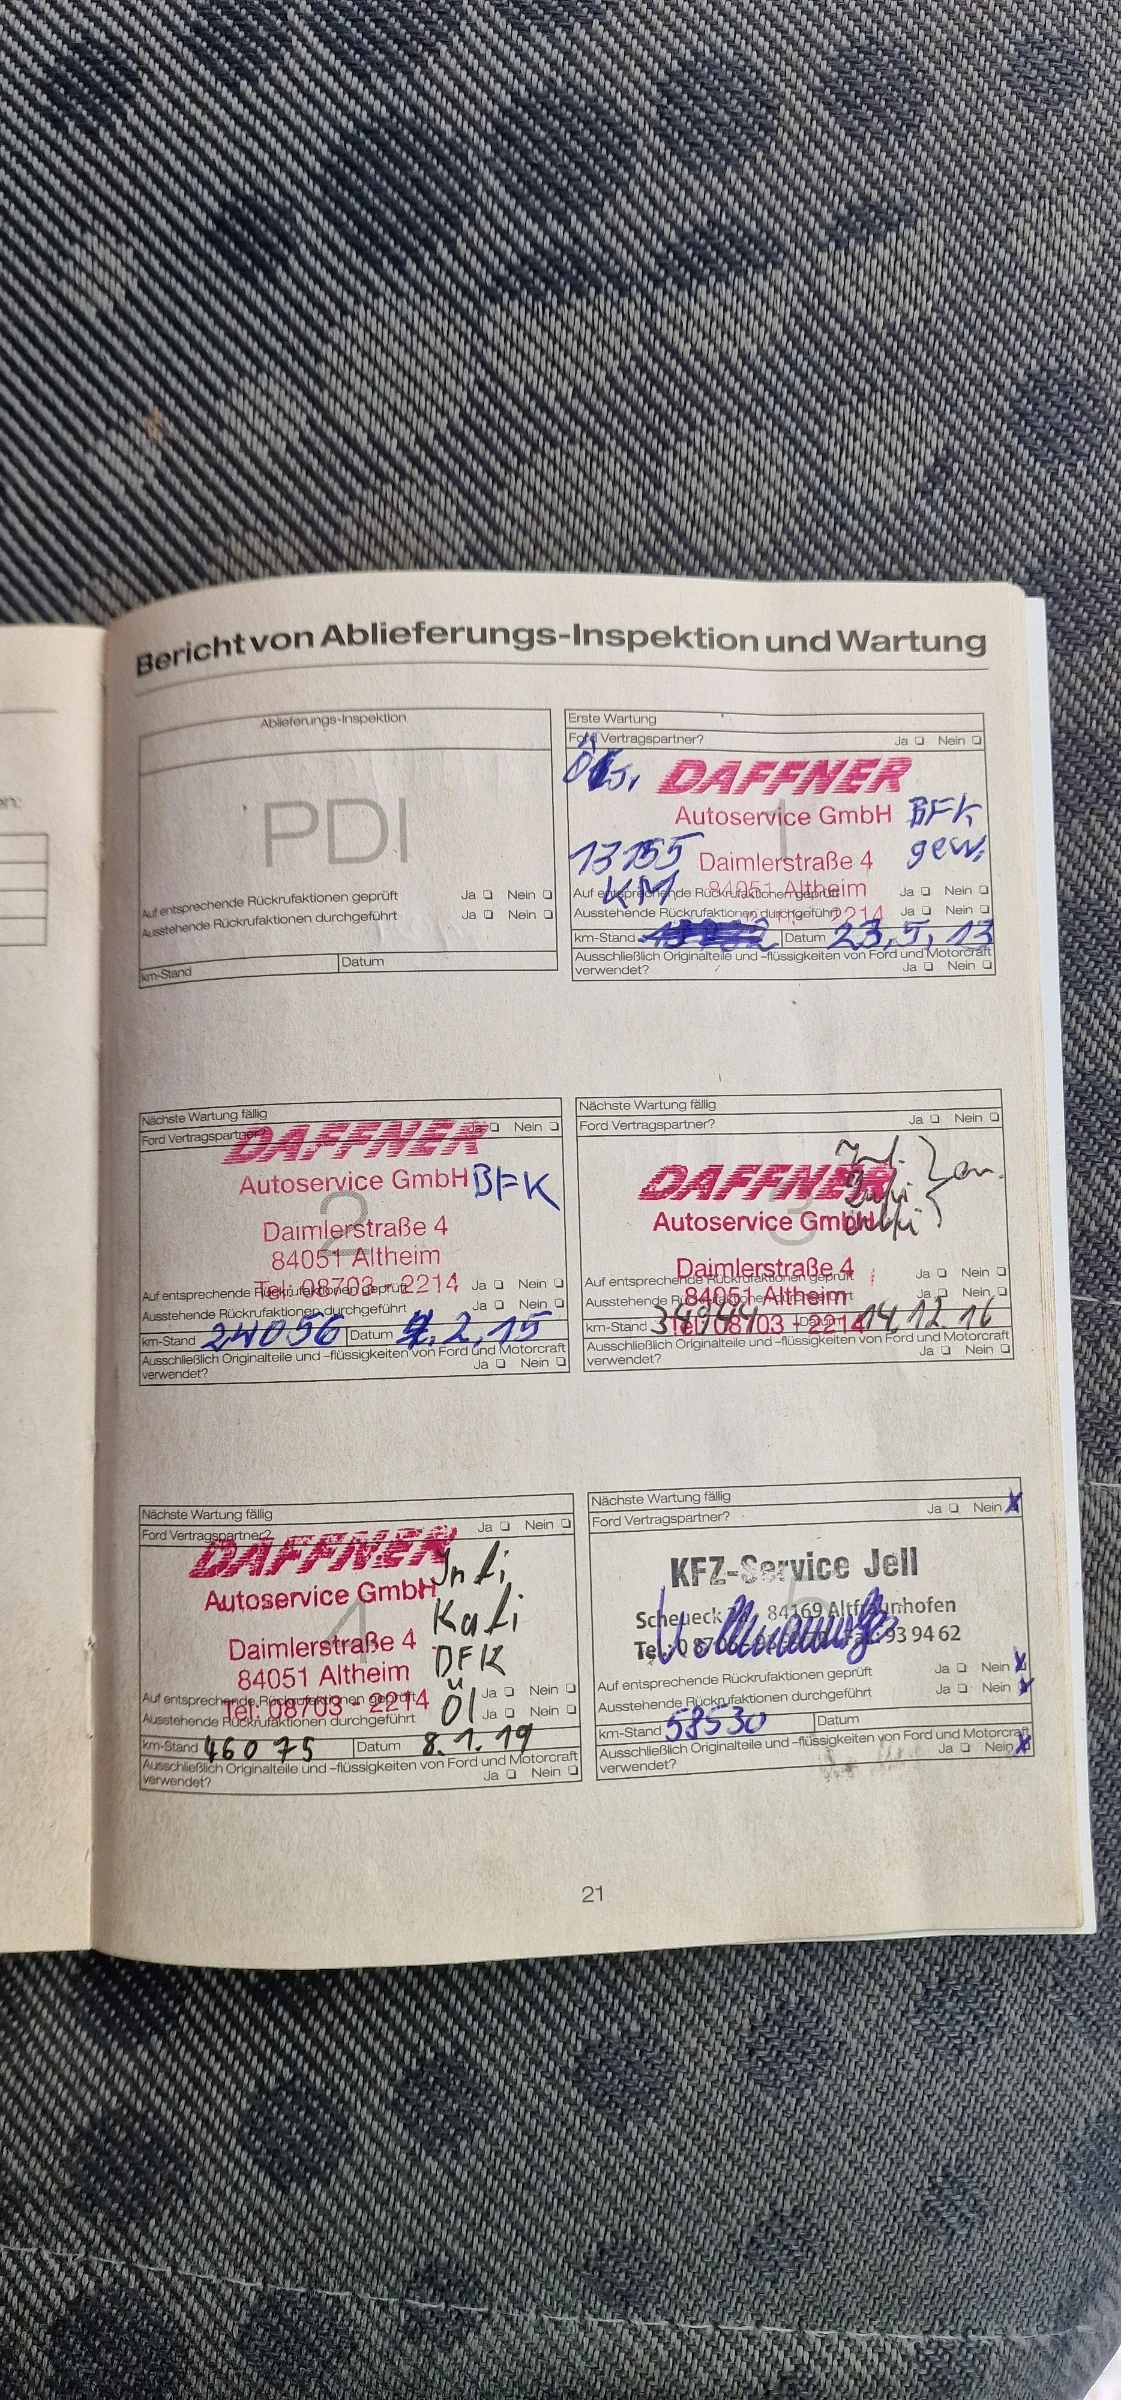 en:
Bericht von Ablieferungs-Inspektion und Wartung
Ablieferungs-Inspektion
PDI
Auf entsprechende Rückrufaktionen geprüft Ja Nein
Ausstehende Rückrufaktionen durchgeführt Ja Nein
km-Stand Datum
Erste Wartung
Ford Vertragspartner? Ja Nein
DAFFNER
Autoservice GmbH BFK
1
13155 Daimlerstraße 4 gew.
KM 84051 Altheim
Auf entsprechende Rückrufaktionen geprüft Ja Nein
2214
Ausstehende Rückrufaktionen durchgeführt Ja Nein
km-Stand Datum 23,5,13
Ausschließlich Originalteile und –flüssigkeiten von Ford und Motorcraft
verwendet? Ja Nein
Nächste Wartung fällig
Ford Vertragspartner? Ja Nein
DAFFNER
Autoservice GmbH BFK
2
Daimlerstraße 4
84051 Altheim
Tel.: 08703 - 2214
Auf entsprechende Rückrufaktionen geprüft Ja Nein
Ausstehende Rückrufaktionen durchgeführt Ja Nein
km-Stand 24056 Datum 2,15
Ausschließlich Originalteile und –flüssigkeiten von Ford und Motorcraft
verwendet? Ja Nein
Nächste Wartung fällig
Ford Vertragspartner? Ja Nein
DAFFNER
Autoservice GmbH
3
Daimlerstraße 4
Auf entsprechende Rückrufaktionen geprüft Ja Nein
84051 Altheim
Ausstehende Rückrufaktionen durchgeführt Ja Nein
Tel: 08703 - 2214
km-Stand Datum 14.12.16
Ausschließlich Originalteile und –flüssigkeiten von Ford und Motorcraft
verwendet? Ja Nein
Nächste Wartung fällig
Ford Vertragspartner? Ja Nein
DAFFNER
Autoservice GmbH
4
Daimlerstraße 4
84051 Altheim
Tel: 08703 - 2214
Öl
Auf entsprechende Rückrufaktionen geprüft Ja Nein
Ausstehende Rückrufaktionen durchgeführt Ja Nein
km-Stand 46075 Datum 8.1.19
Ausschließlich Originalteile und –flüssigkeiten von Ford und Motorcraft
verwendet? Ja Nein
Nächste Wartung fällig
Ford Vertragspartner? Ja Nein X
KFZ-Service Jell
5
Scheueck 84169 Altfraunhofen
Tel.: 93 94 62
Auf entsprechende Rückrufaktionen geprüft Ja Nein X
Ausstehende Rückrufaktionen durchgeführt Ja Nein X
km-Stand 58530 Datum
Ausschließlich Originalteile und –flüssigkeiten von Ford und Motorcraft
verwendet? Ja Nein X
21